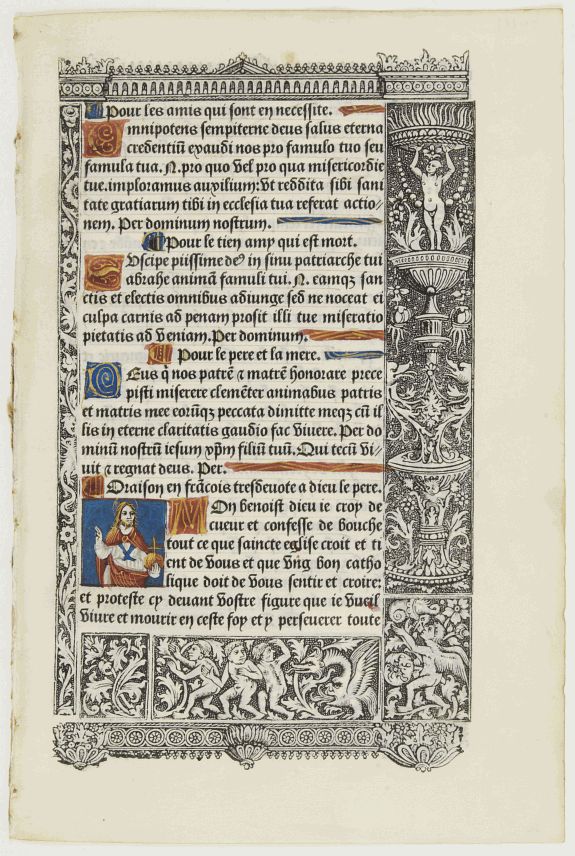 Pour les amis qui sont en necessite.
Omnipotens sempiterne deus salus eterna
credentiū exaudi nos pro famulo tuo seu
famula tua. N. pro quo vel pro qua misericordie
tue. imploramus auxilium: vt reddita sibi sani
tate gratiarum tibi in ecclesia tua referat actio-
nem. Per dominum nostrum.
Pour le tien amy qui est mort.
Suscipe piissime deꝰ in sinu patriarche tui
abrahe animā famuli tui. N. eamqȝ san
ctis et electis omnibus adiunge sed ne noceat ei
culpa carnis ad penam prosit illi tue miseratio
pietatis ad veniam. Per dominum.
Pour le pere et la mere.
Deus q̇ nos patrē ⁊ matrē honorare prece
pisti miserere clemēter animabus patris
et matris mee eorūqȝ peccata dimitte meqȝ cū il
lis in eterne claritatis gaudio fac viuere. Per do
minū nostrū iesum xp̄m filiū tuū. Qui tecū vi-
uit ⁊ regnat deus. Per.
Oraison en frācois tresdeuote a dieu le pere.
Mon benoist dieu ie croy de
cueur et confesse de bouche
tout ce que saincte eglise croit et ti
ent de vous et que vng bon catho
lique doit de vous sentir et croire:
et proteste cy deuant vostre figure que ie vueil
viure et mourir en ceste foy et y perseuerer toute